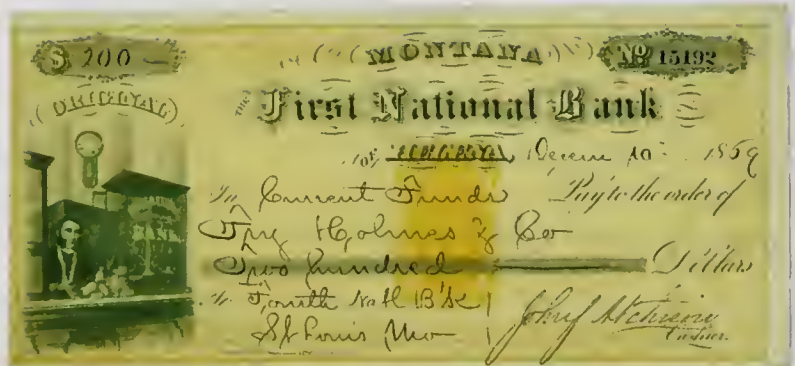 $ 200 —
MONTANA
No 15192
(ORIGINAL)
THE First National Bank
OF HELENA, Decem 10 1869
In Current Funds Pay to the order of
Holmes & Co
Two hundred Dollars
To Fourth Natl B'k
St Louis Mo
John Atchison
Cashier.